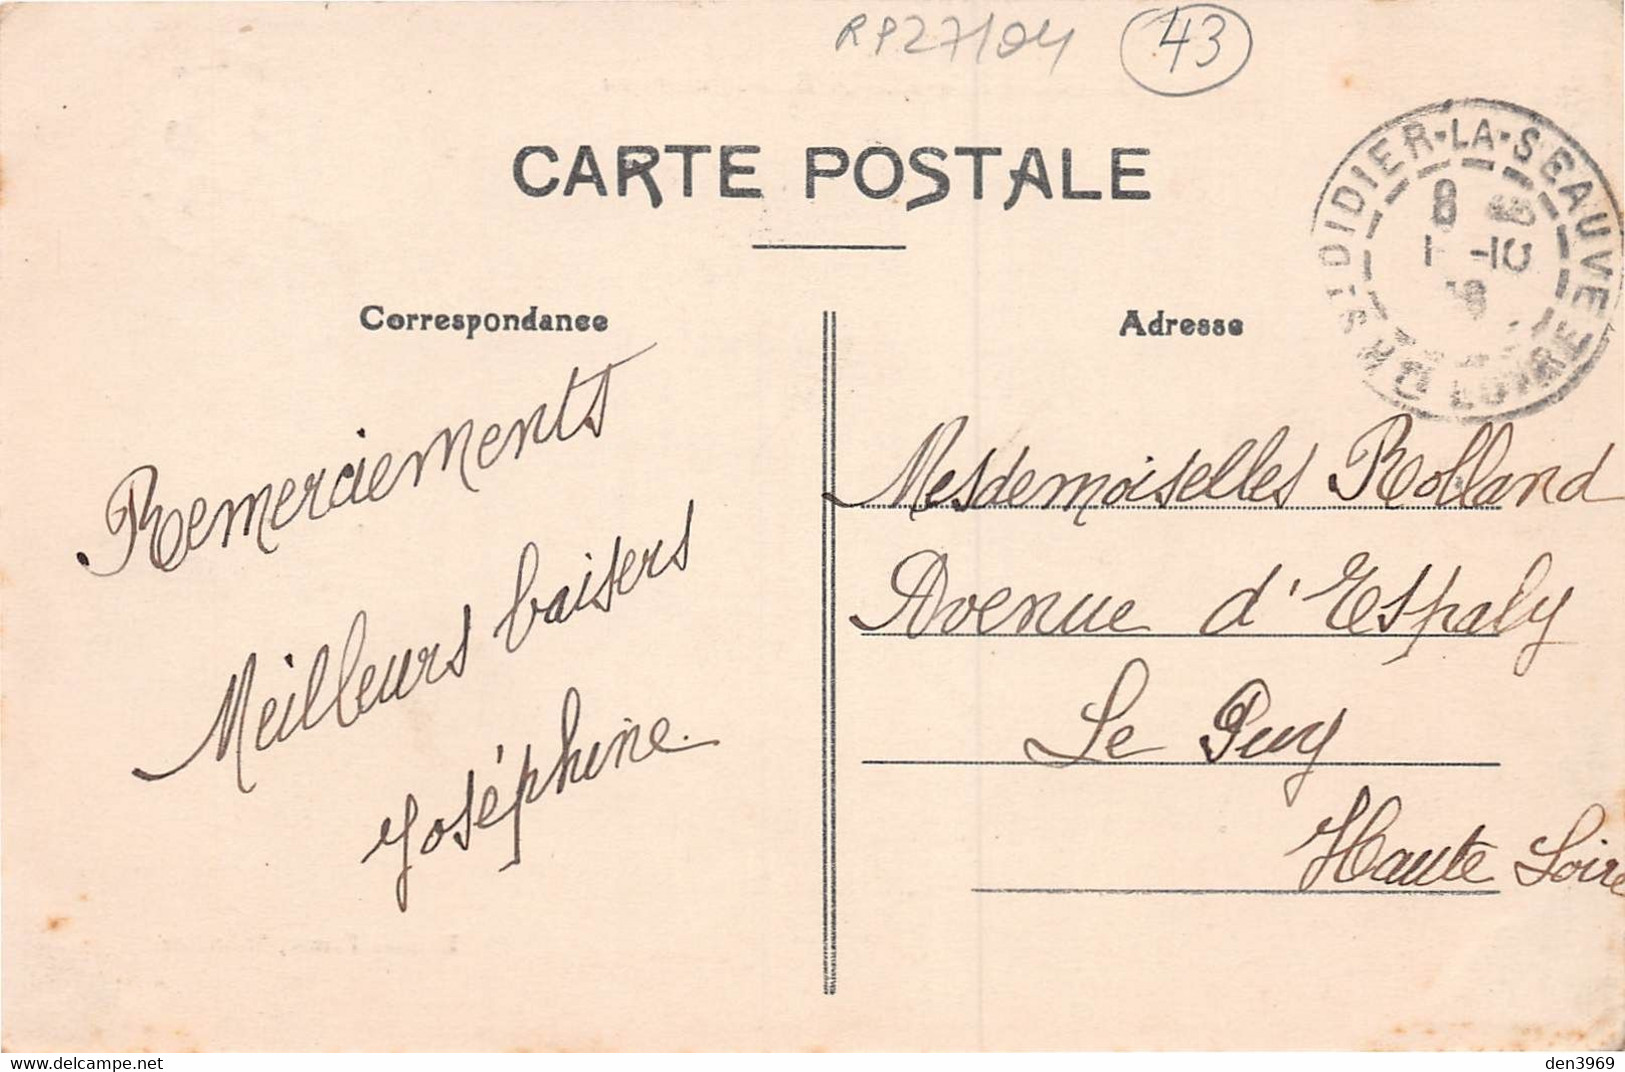 RP27104
43
CARTE POSTALE
Correspondance
Adresse
St DIDIER-LA-SEAUVE
Hte LOIRE
8
1 -10
Remerciements
Meilleurs baisers
Joséphine.
Mesdemoiselles Rolland
Avenue d'Espaly
Le Puy
Haute Loire
www.delcampe.net
den3969